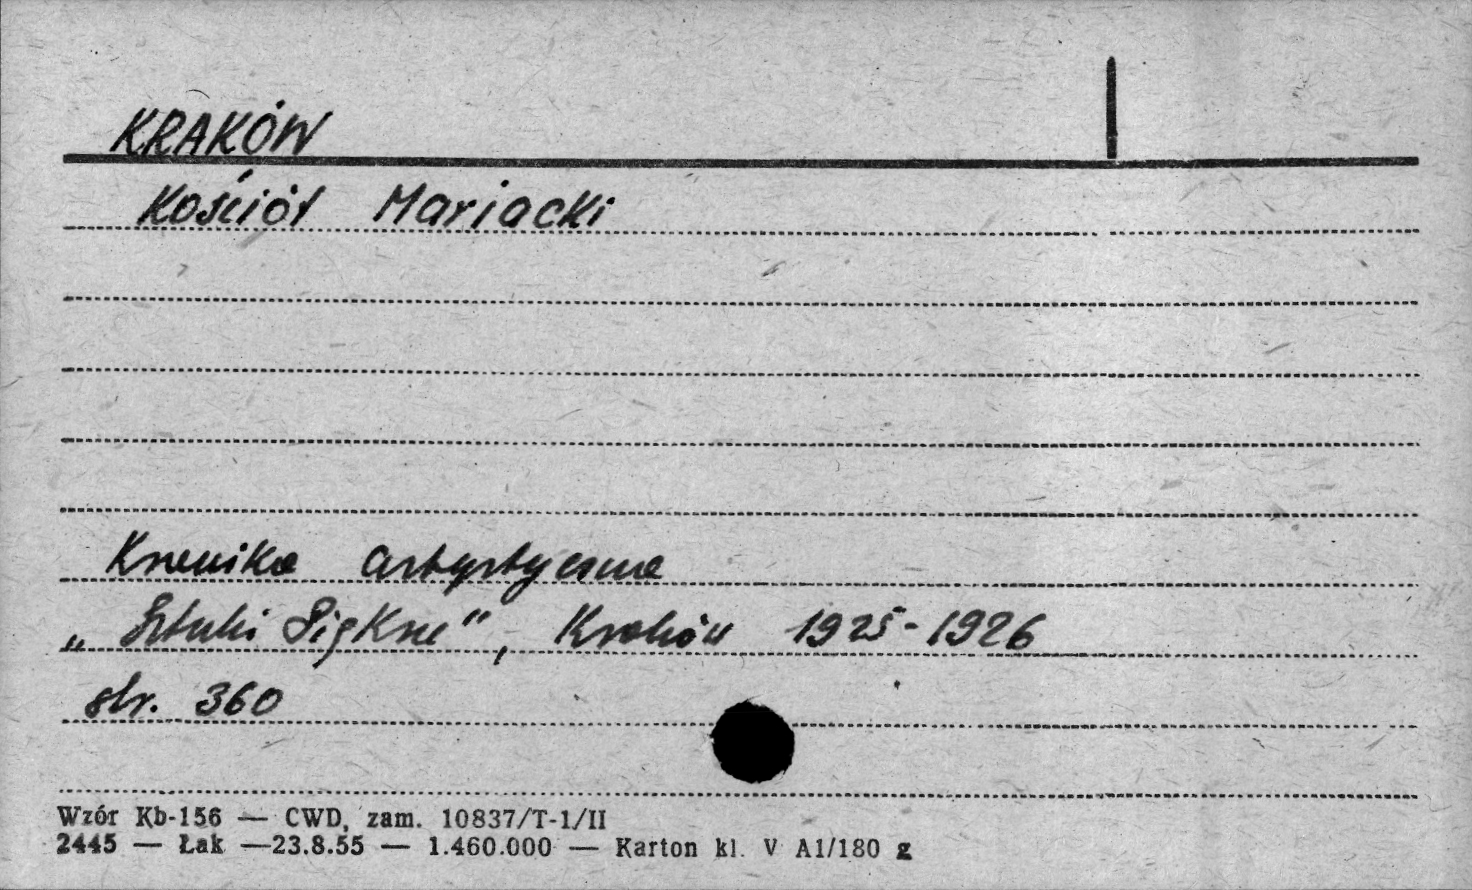 KRAKÓW
Kościół Mariacki
Kronika artystyczna
„Sztuki Piękne", Kraków 1925-1926
str. 360
Wzór Kb-156 — CWD, zam. 10837/T-1/II
2445 — Łak —23.8.55 — 1.460.000 — Karton kl. V A1/180 g